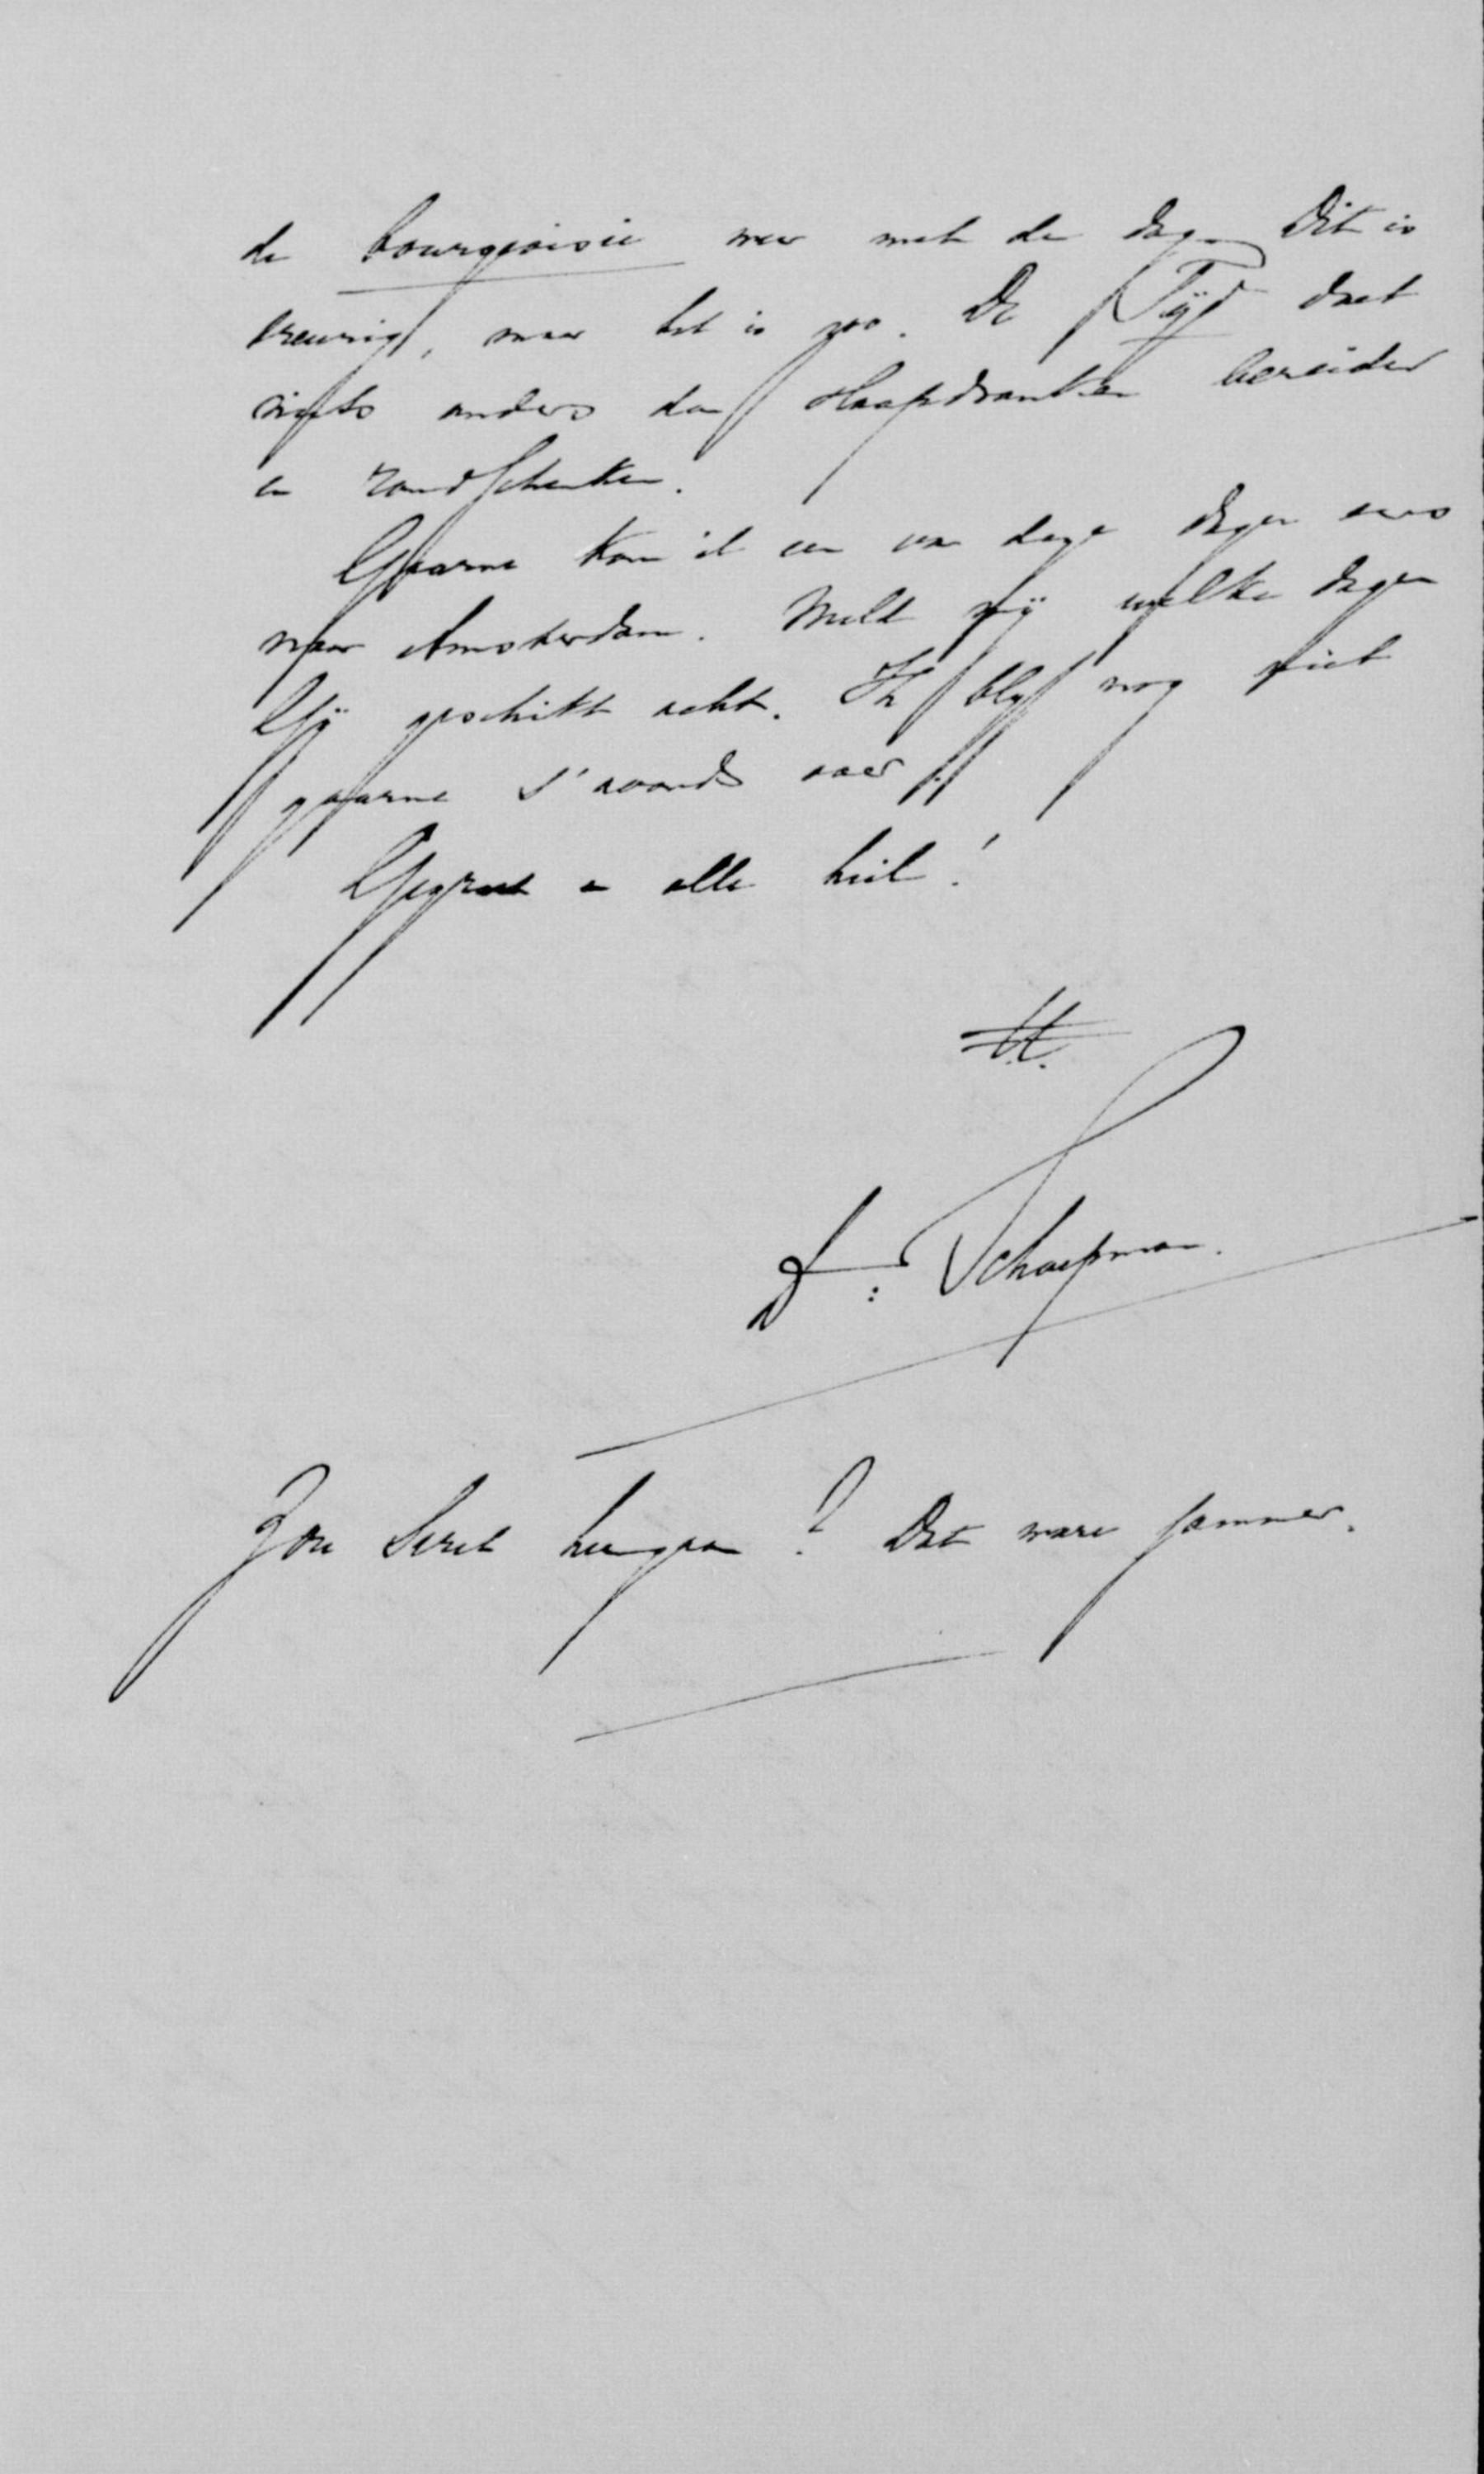 de bourgeoisie meer met de dag. Dit is
treurig, maar het is zoo. De Tijd doet
niets anders dan slaapdranken bereiden
en rondschenken.
Gaarne kom ik een van deze dagen eens
naar Amsterdam. Meld mij welke dagen
Gij geschikt acht. Ik blijf nog niet
gaarne s'avonds over.
Gegroet en alle heil!
tt.
Dr: Schaepman.
Zou heengaan? Dat ware jammer.